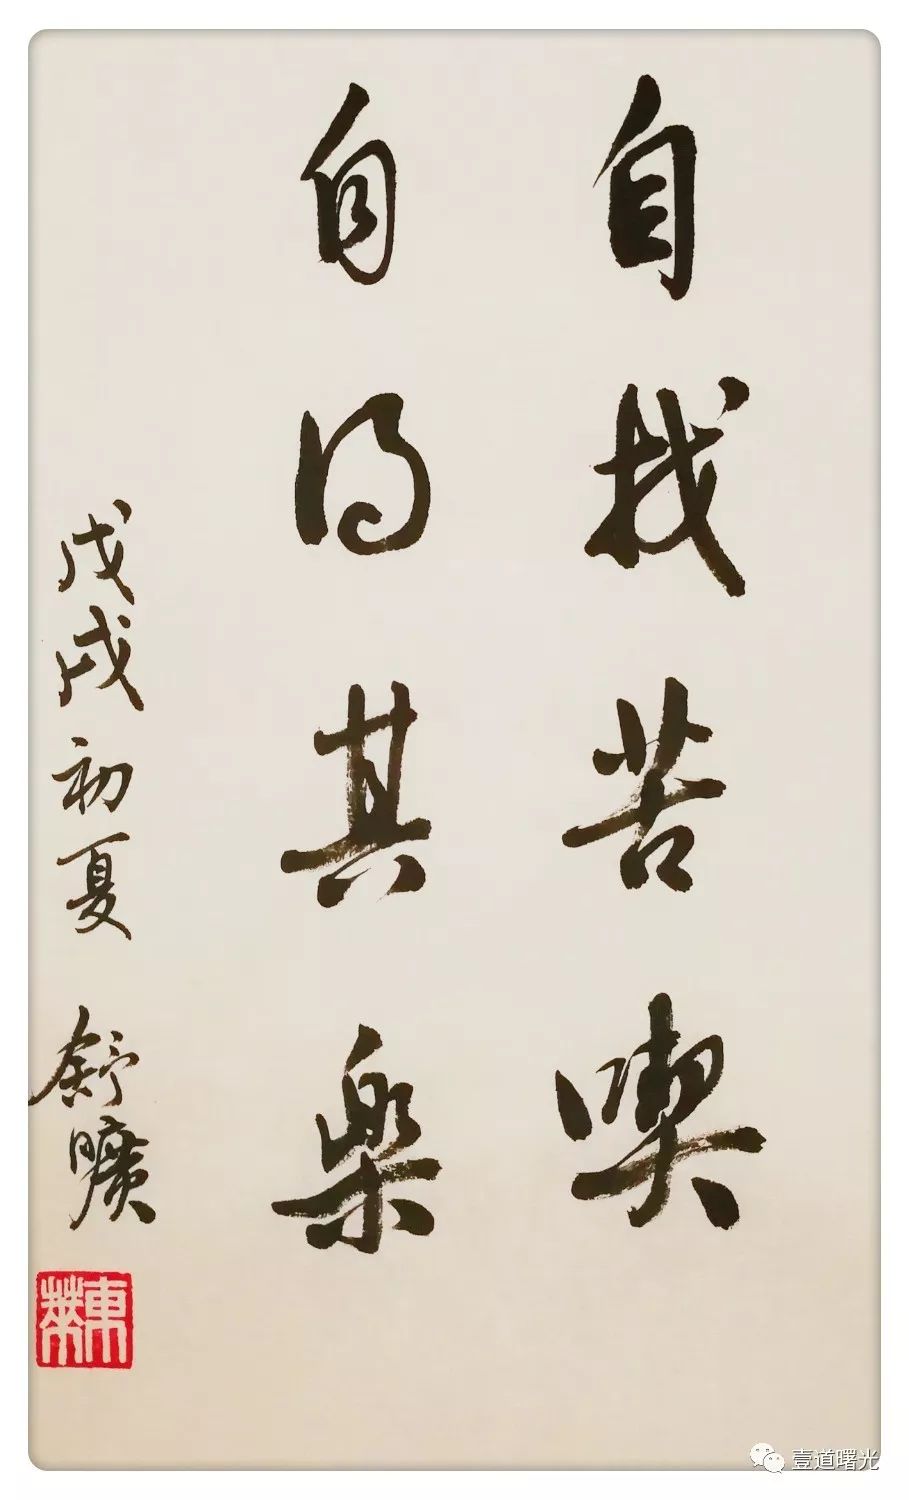 自找苦喫
自得其樂
戊戌初夏 舒曠
東華
壹道曙光